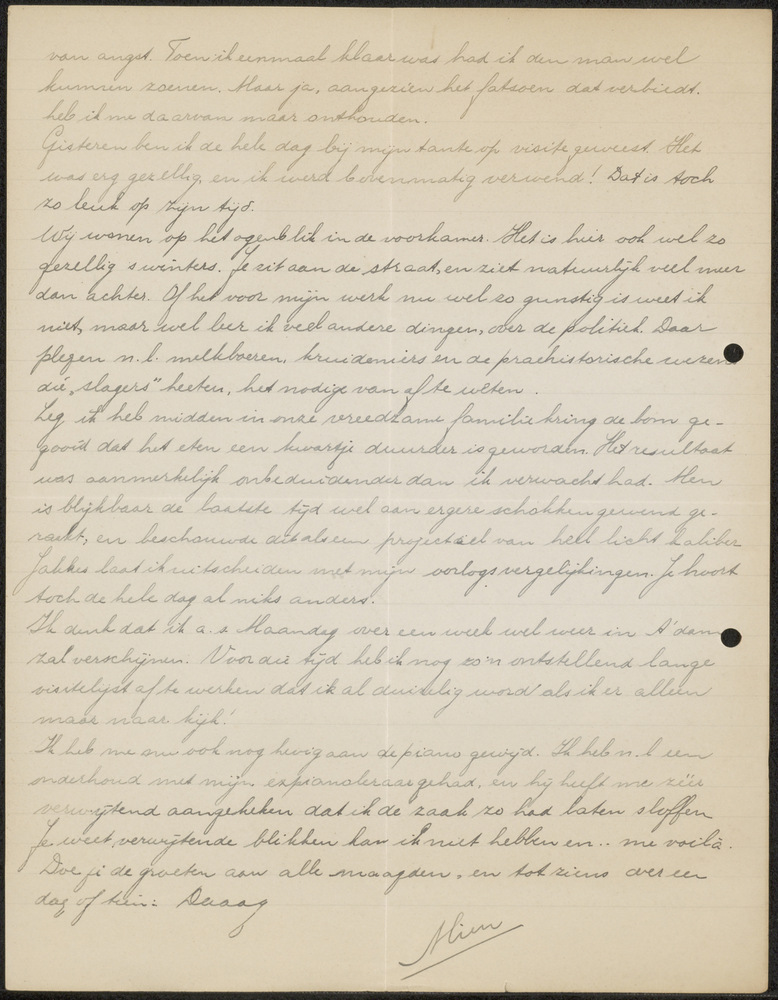 van angst. Toen ik eenmaal klaar was had ik den man wel
kunnen zoenen. Maar ja, aangezien het fatsoen dat verbiedt.
heb ik me daarvan maar onthouden.
Gisteren ben ik de hele dag bij mijn tante op visite geweest. Het
was erg gezellig, en ik werd bovenmatig verwend! Dat is toch
zo leuk op zijn tijd.
Wij wonen op het ogenblik in de voorkamer. Het is hier ook wel zo
gezellig s winters. Je zit aan de straat, en ziet natuurlijk veel meer
dan achter. Of het voor mijn werk nu wel zo gunstig is weet ik
niet, maar wel leer ik veel andere dingen, over de politiek. Daar
plegen n.l. melkboeren, kruideniers en de praehistorische wezens
die "slagers" heeten, het nodige van af te weten.
Zeg ik heb midden in onze vreedzame familiekring de bom ge-
gooid dat het eten een kwartje duurder is geworden. Het resultaat
was aanmerkelijk onbeduidender dan ik verwacht had. Men
is blijkbaar de laatste tijd wel aan ergere schokken gewend ge-
raakt, en beschouwde dit als een projectiel van heel licht kaliber
Jakkes laat ik uitscheiden met mijn oorlogsvergelijkingen. Je hoort
toch de hele dag al niks anders.
Ik denk dat ik a.s Maandag over een week wel weer in A'dam
zal verschijnen. Voor die tijd heb ik nog zo'n ontstellend lange
visitelijst af te werken dat ik al duizelig word als ik er alleen
maar naar kijk!
Ik heb me nu ook nog hevig aan de piano gewijd. Ik heb n.l een
onderhoud met mijn expianoleraar gehad, en hij heeft me zéér
verwijtend aangekeken dat ik de zaak zo had laten sloffen
Je weet, verwijtende blikken kan ik niet hebben en .. me voilà.
Doe je de groeten aan alle maagden, en tot ziens over een
dag of tien: Daaag
Mien